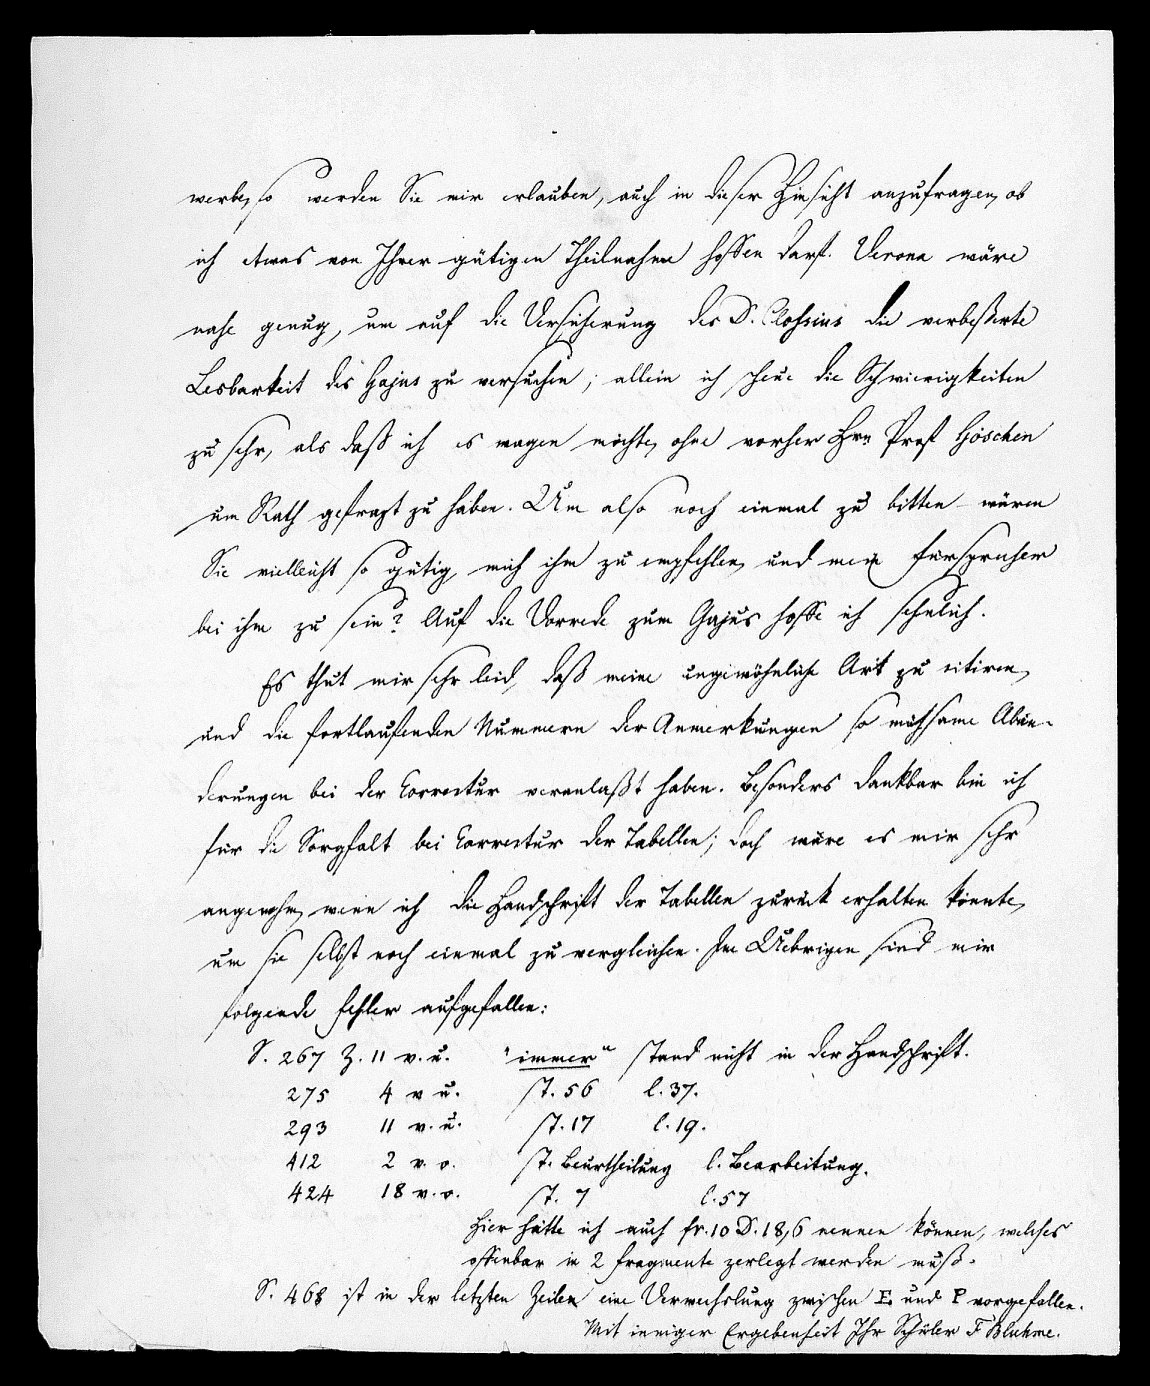 werbe, so werden Sie mir erlauben, auch in dieser Hinsicht anzufragen, ob
ich etwas von Ihrer gütigen Theilnahme hoffen darf. Verona wäre
nahe genug, um auf die Versicherung des D. Clossius die verbeßerte
Lesbarkeit des Gajus zu versuchen; allein ich scheue die Schwierigkeiten
zu sehr, als daß ich es wagen möchte, ohne vorher Hrn Prof Göschen
um Rath gefragt zu haben. Um also noch einmal zu bitten – wären
Sie vielleicht so gütig, mich ihm zu empfehlen, und mein Fürsprecher
bei ihm zu sein? Auf die Vorrede zum Gajus hoffe ich sehnlich.
Es thut mir sehr leid, daß meine ungewöhnliche Art zu citiren,
und die fortlaufenden Nummern der Anmerkungen so mühsame Abän-
derungen bei der Correctur veranlaßt haben. Besonders dankbar bin ich
für die Sorgfalt bei Correctur der Tabellen; doch wäre es mir sehr
angenehm, wenn ich die Handschrift der Tabellen zurück erhalten könnte,
um sie selbst noch einmal zu vergleichen. Im Uebrigen sind mir
folgende Fehler aufgefallen:
S. 267 Z. 11 v. u. "immer" stand nicht in der Handschrift.
275 4 v u. st. 56 l. 37.
293 11 v. u. st. 17 l. 19.
412 2 v. o. st. Beurtheilung l. Bearbeitung.
424 18 v. o. st. 7 l. 57
Hier hätte ich auch fr. 10 D. 18,6 nennen können, welches
offenbar in 2 Fragmente zerlegt werden muß.
S. 468 ist in der letzten Zeilen eine Verwechslung zwischen E. und P vorgefallen.
Mit inniger Ergebenheit Ihr Schüler F Bluhme.